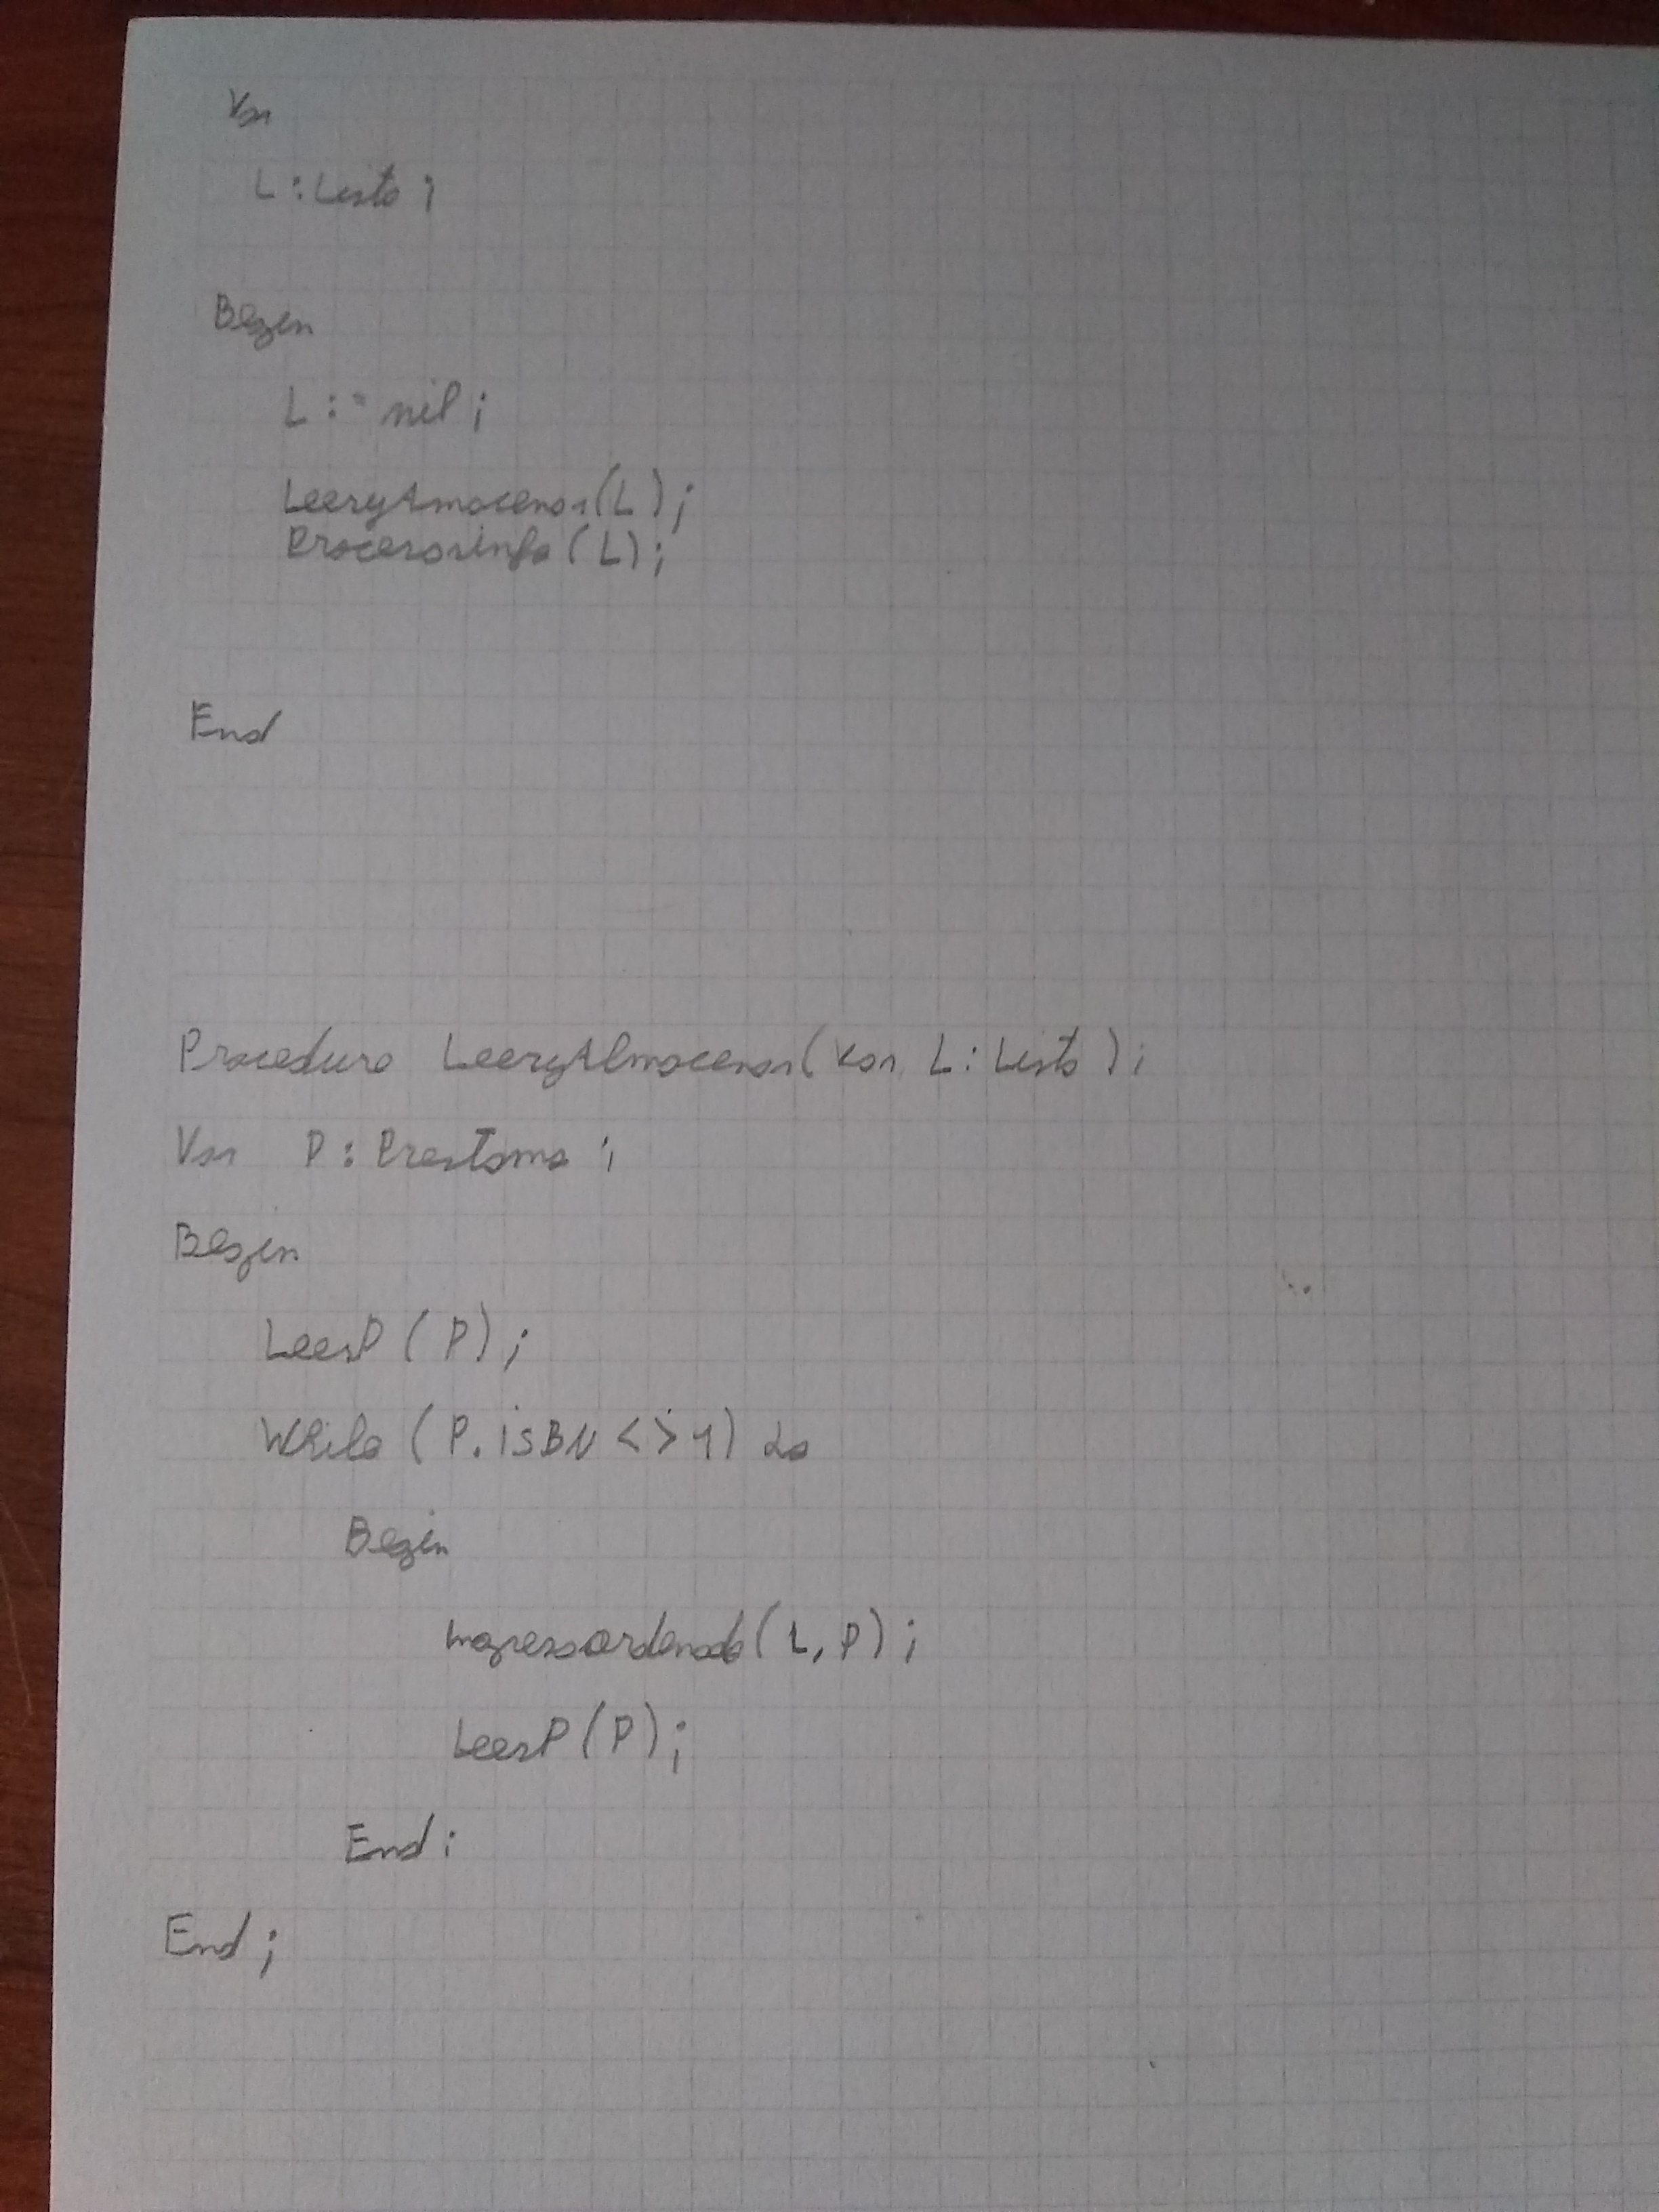 Var
L : Lista ;
Begin
L := nil ;
LeeryAmacenar(L) ;
Procesarinfo (L) ;
End
Procedure LeeryAlmacenar( Var L : Lista ) ;
Var P : Prestamo ;
Begin
LeerP ( P ) ;
While ( P. isBN <> 1) do
Begin
ingresoordenado( L, P ) ;
LeerP (P) ;
End ;
End ;